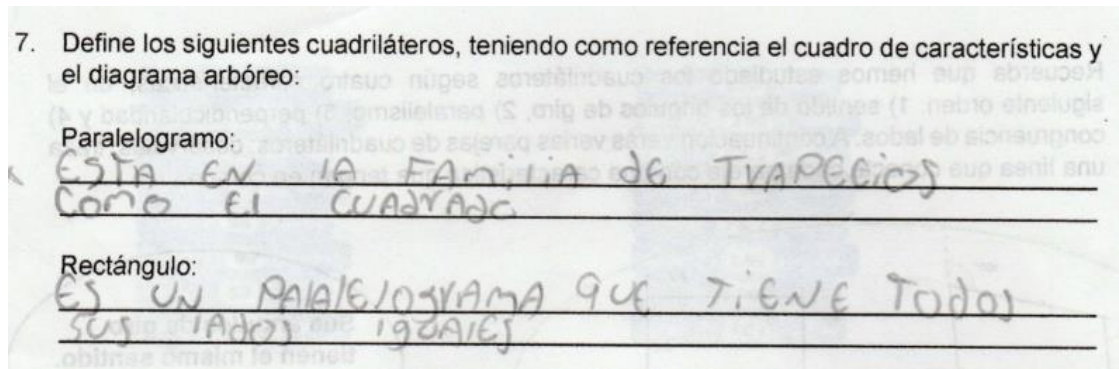 7. Define los siguientes cuadriláteros, teniendo como referencia el cuadro de características y
el diagrama arbóreo:
Paralelogramo:
ESTA EN LA FAMILIA dE TrAPECIOS
COMO El CUAdrAdo
Rectángulo:
ES UN PAlAlElogrAmA quE TiENE Todos
SUS lAdos iguAlES